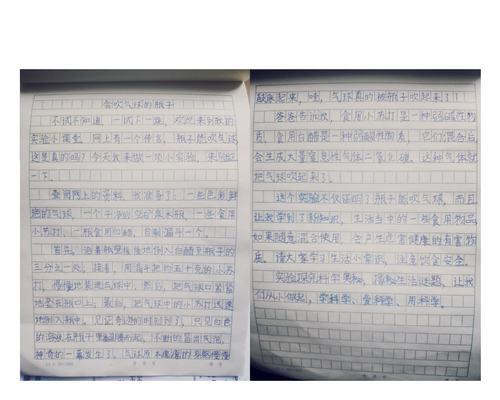 会吹气球的瓶子
不试不知道,一试下一跳,欢迎来到我的
实验小课堂。网上有一个传言,瓶子能吹气球
这是真的吗?今天我来做一项小实验,来验证
一下。
查阅网上的资料,我准备了:一些色彩鲜
艳的气球、一个干净的空矿泉水瓶、一些食用
小苏打、一瓶食用白醋、自制漏斗一个。
首先,沿着瓶壁慢慢倒入白醋至瓶子的
三分之一处。接着,用漏斗把约五十克的小苏
打,慢慢地装进气球中。然后,把气球口紧紧
地套在瓶口上。最后,把气球中的小苏打迅速
地倒入瓶中。见证奇迹的时刻到了,只见白色
的溶液在瓶子里翻腾而起,不断的冒出气泡。
神奇的一幕发生了,气球原本瘪瘪的身躯慢慢
鼓胀起来,哇,气球真的被瓶子吹起来了!
爸爸告诉我,食用小苏打是一种弱碱性物
质,食用白醋是一种弱酸性物质,它们混合后
会生成大量常见性气体二氧化碳。这种气体就
把气球吹起来了。
这个实验不仅证明了瓶子能吹气球,而且
让我学到了新知识,生活当中的一些食用物品
如果随意混合使用,会产生危害健康的有害物
质。请大家学习生活小常识,注意饮食安全。
实验探究科学奥秘,揭秘生活谜题,让我
们从小做起,学科学、爱科学、用科学。